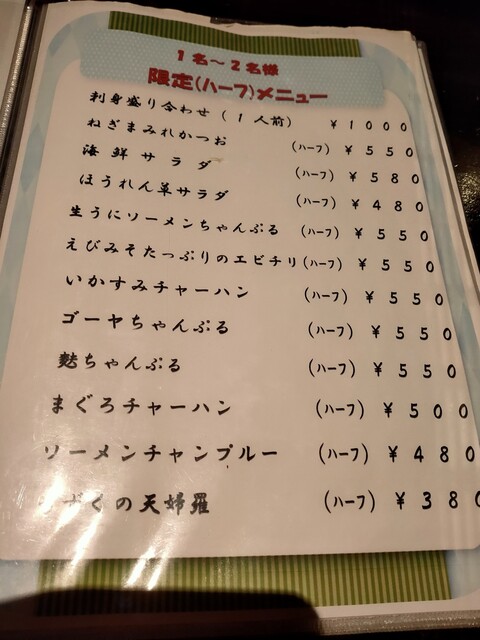 1名～2名様
限定(ハーフ)メニュー
刺身盛り合わせ(1人前) ¥1000
ねぎまみれかつお (ハーフ) ¥550
海鮮サラダ (ハーフ) ¥580
ほうれん草サラダ (ハーフ) ¥480
生うにソーメンちゃんぷる (ハーフ) ¥550
えびみそたっぷりのエビチリ (ハーフ) ¥550
いかすみチャーハン (ハーフ) ¥550
ゴーヤちゃんぷる (ハーフ) ¥550
麩ちゃんぷる (ハーフ) ¥550
まぐろチャーハン (ハーフ) ¥500
ソーメンチャンプルー (ハーフ) ¥480
もずくの天婦羅 (ハーフ) ¥380